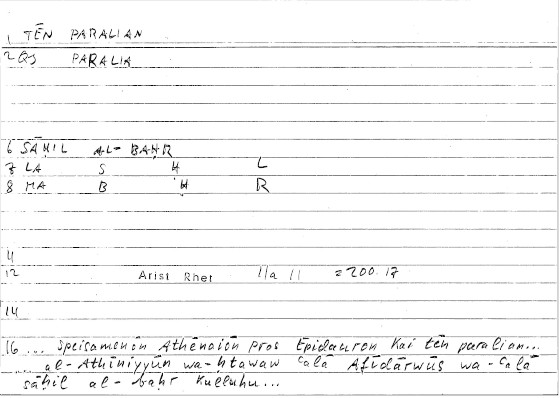 1 TĒN PARALIAN
2 QS PARALIA
6 SĀḤIL AL-BAḤR
7 LA S Ḥ L
8 MA B Ḥ R
11
12 Arist Rhet 11a 11 = 200.17
14
16 ... speisamenōn Athēnaiōn pros Epidauron kai tēn paralian...
... al-Athīniyyūn wa-ḥtawaw ʿalā Afīdārwūs wa-ʿalā
sāḥil al-baḥr kulluhu...